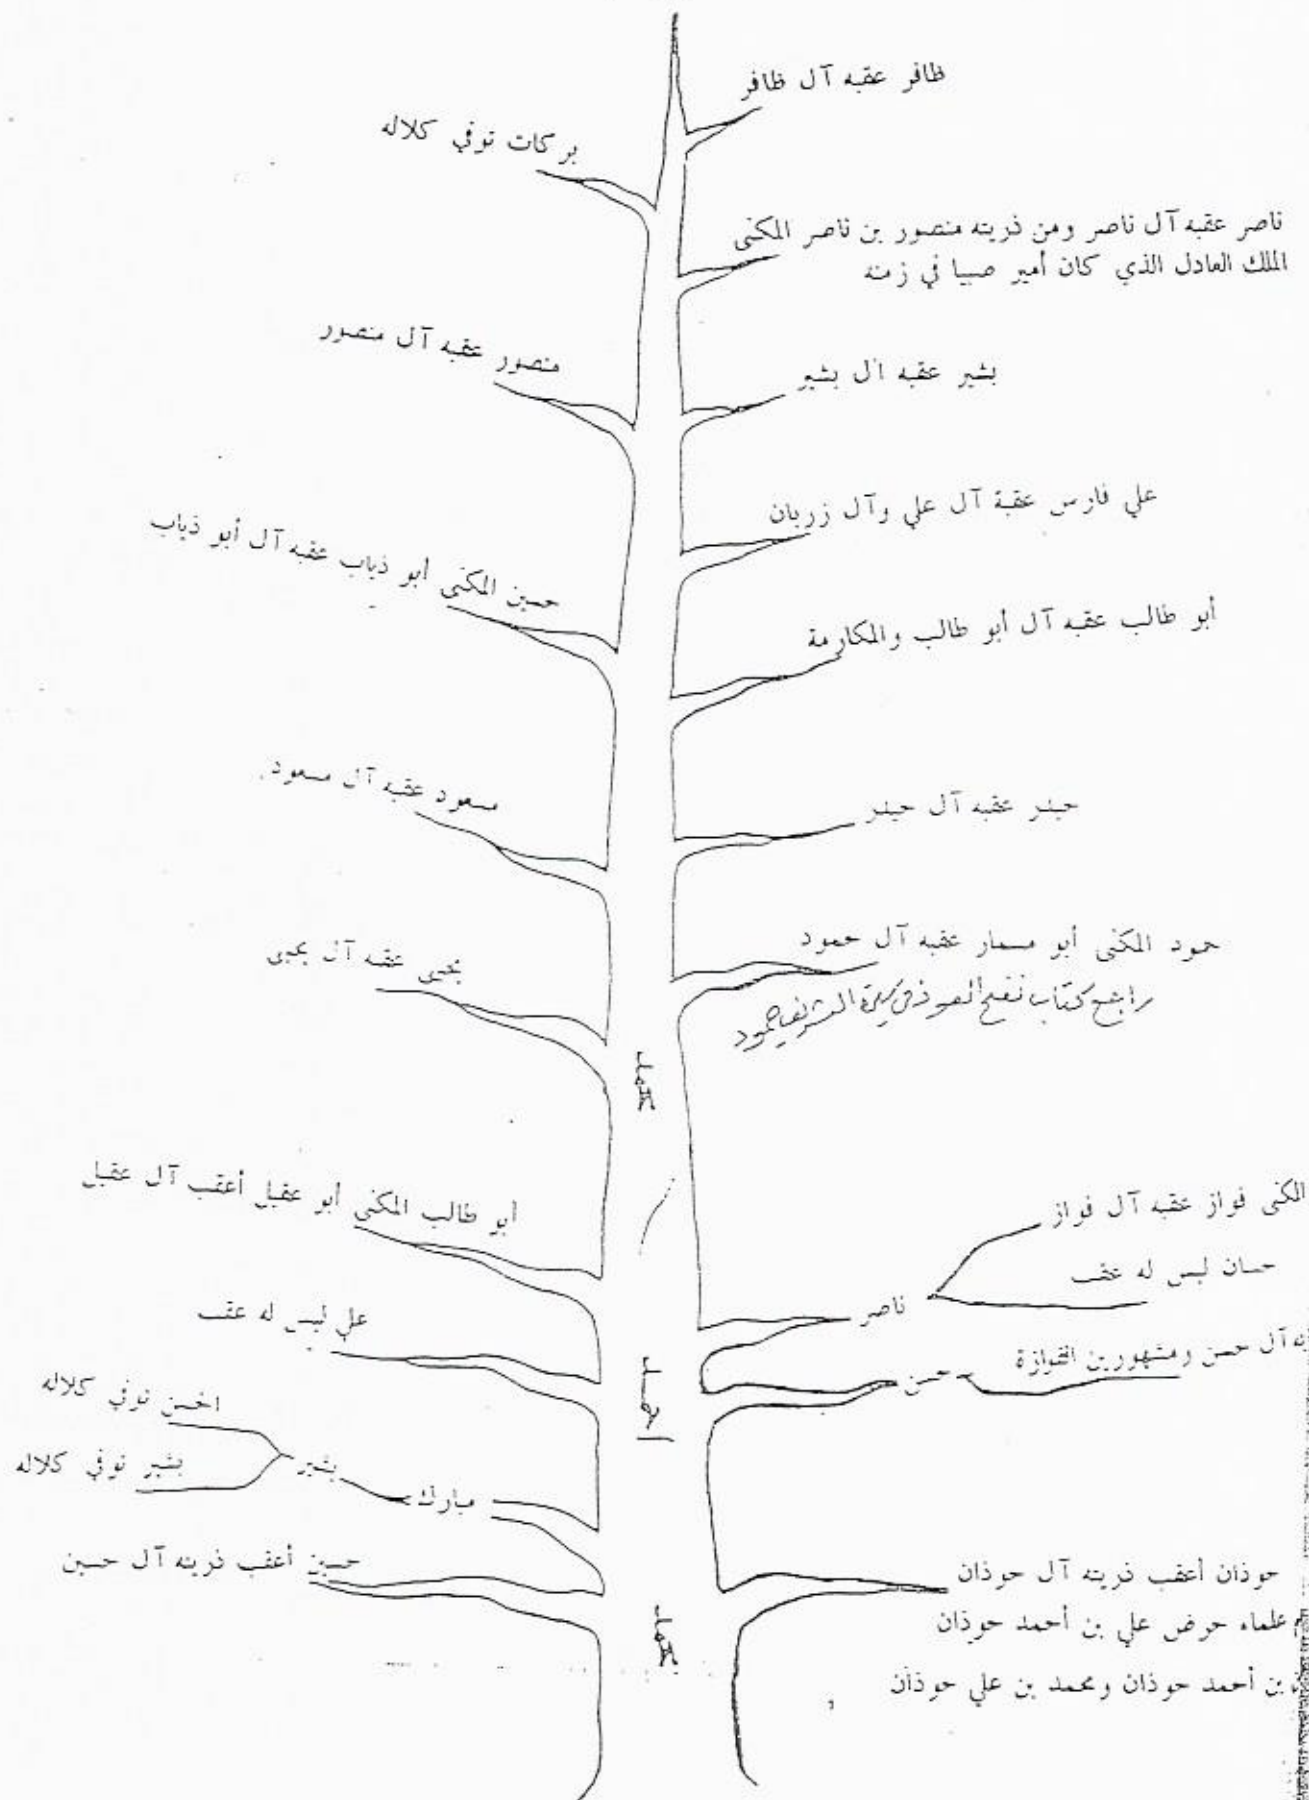 ظافر عقبه آل ظافر
بركات توفي كلاله
ناصر عقبه آل ناصر ومن ذريته منصور بن ناصر المكنى
الملك العادل الذي كان أمير صبيا في زمنه
منصور عقبه آل منصور
بشير عقبه ال بشير
علي فارس عقبة آل علي وآل زربان
حسين المكنى أبو ذياب عقبه آل أبو ذياب
أبو طالب عقبه آل أبو طالب والمكارمة
مسعود عقبه آل مسعود
حيدر عقبه آل حيدر
حمود المكنى أبو مسمار عقبه آل حمود
راجع كتاب نفح العود في سيرة الشريف حمود
يحيى عقبه آل يحيى
محمد
أبو طالب المكنى أبو عقيل أعقب آل عقيل
المكنى فواز عقبه آل فواز
حسان ليس له عقب
ناصر
علي ليس له عقب
آل حسن ومشهورين الفوازة
حسن
أحمد
الحسن توفي كلاله
بشير توفي كلاله
بشير
مبارك
حسين أعقب ذريته آل حسين
حوذان أعقب ذريته آل حوذان
علماء حرض علي بن أحمد حوذان
بن أحمد حوذان ومحمد بن علي حوذان
محمد